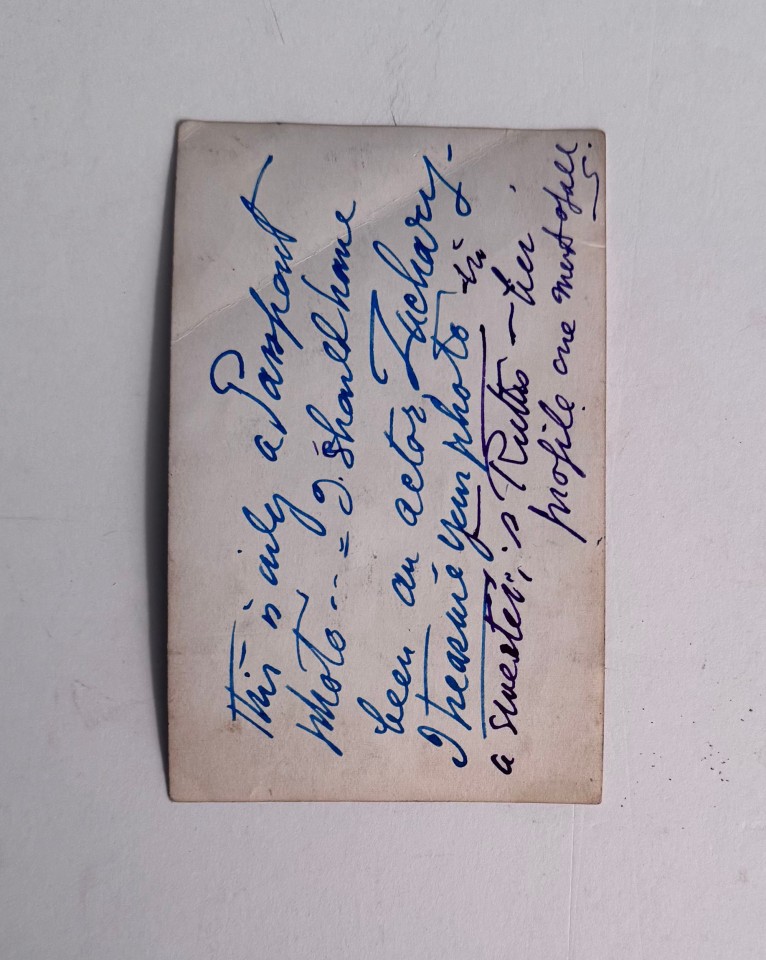 This is only a Passport
photo --- = I should have
been an actor Zachary -
I treasure your photo in
a sweater, is Ruth's - her
profile one most of all.